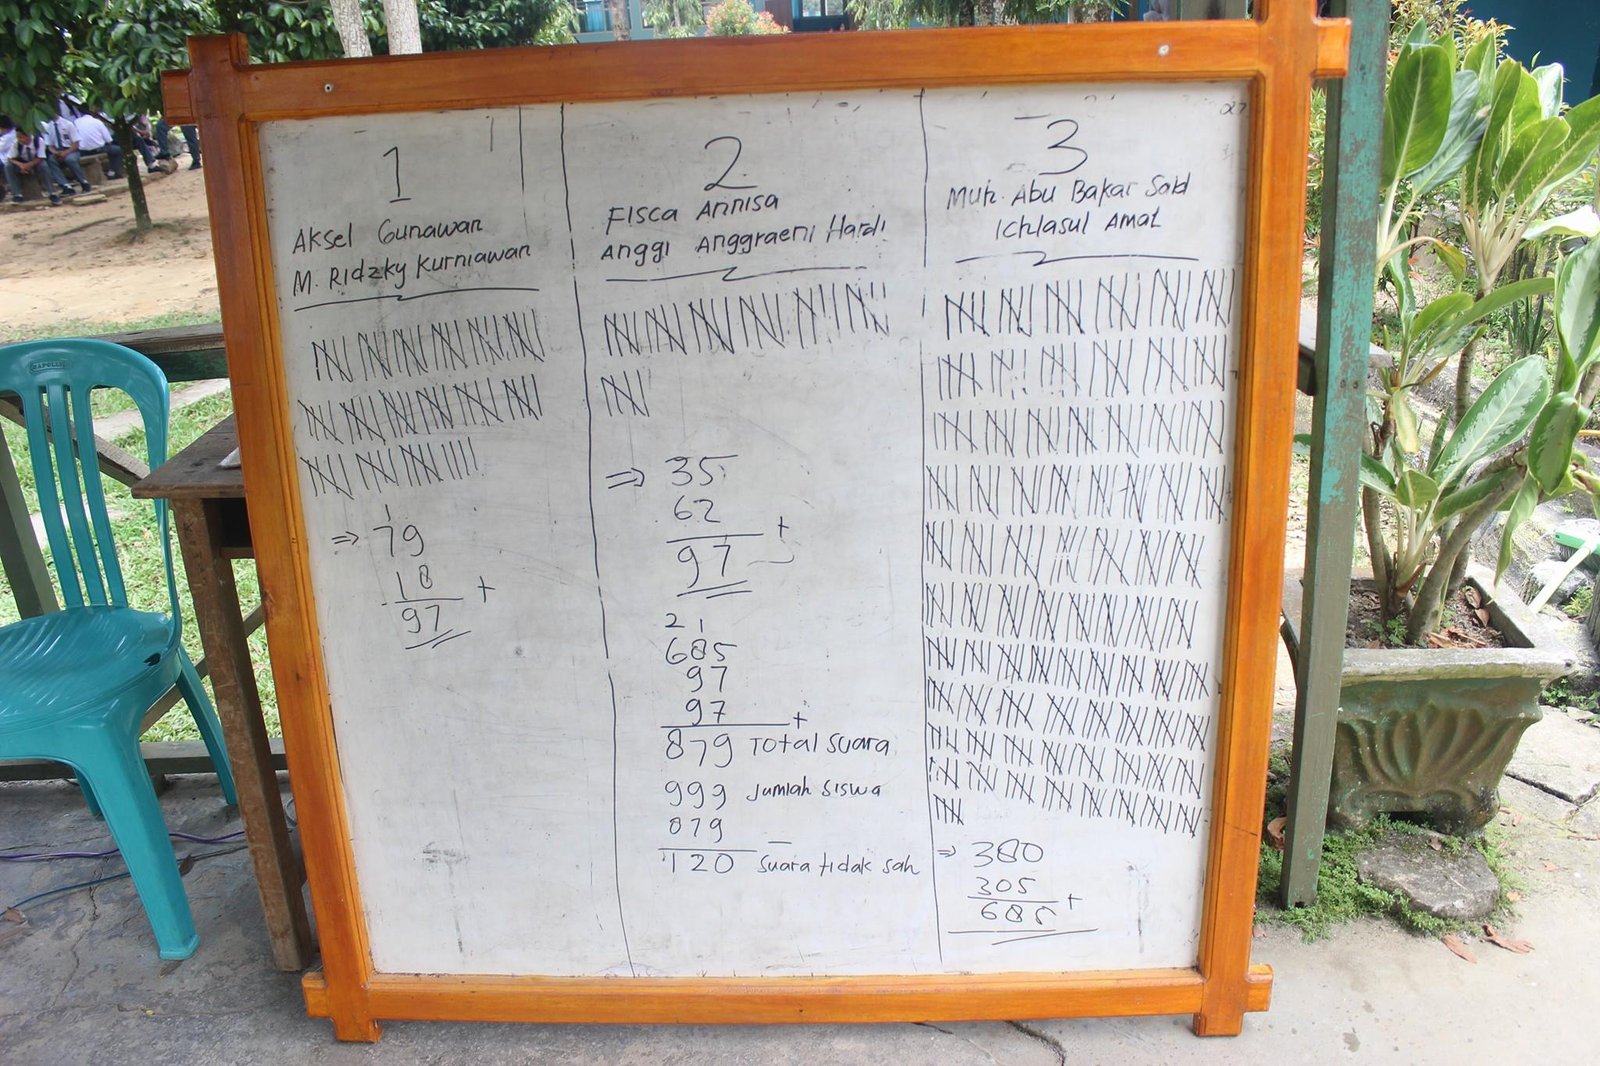 1
Aksel Gunawan
M. Ridzky Kurniawan
⇒ 79
18 +
97
2
Fisca Annisa
Anggi Anggraeni Hardi
⇒ 35
62 +
97
2 1
685
97
97 +
879 Total suara
999 Jumlah siswa
879 -
120 suara tidak sah
3
Muh. Abu Bakar Said
Ichlasul Amal
⇒ 380
305 +
685
NAPOLLY